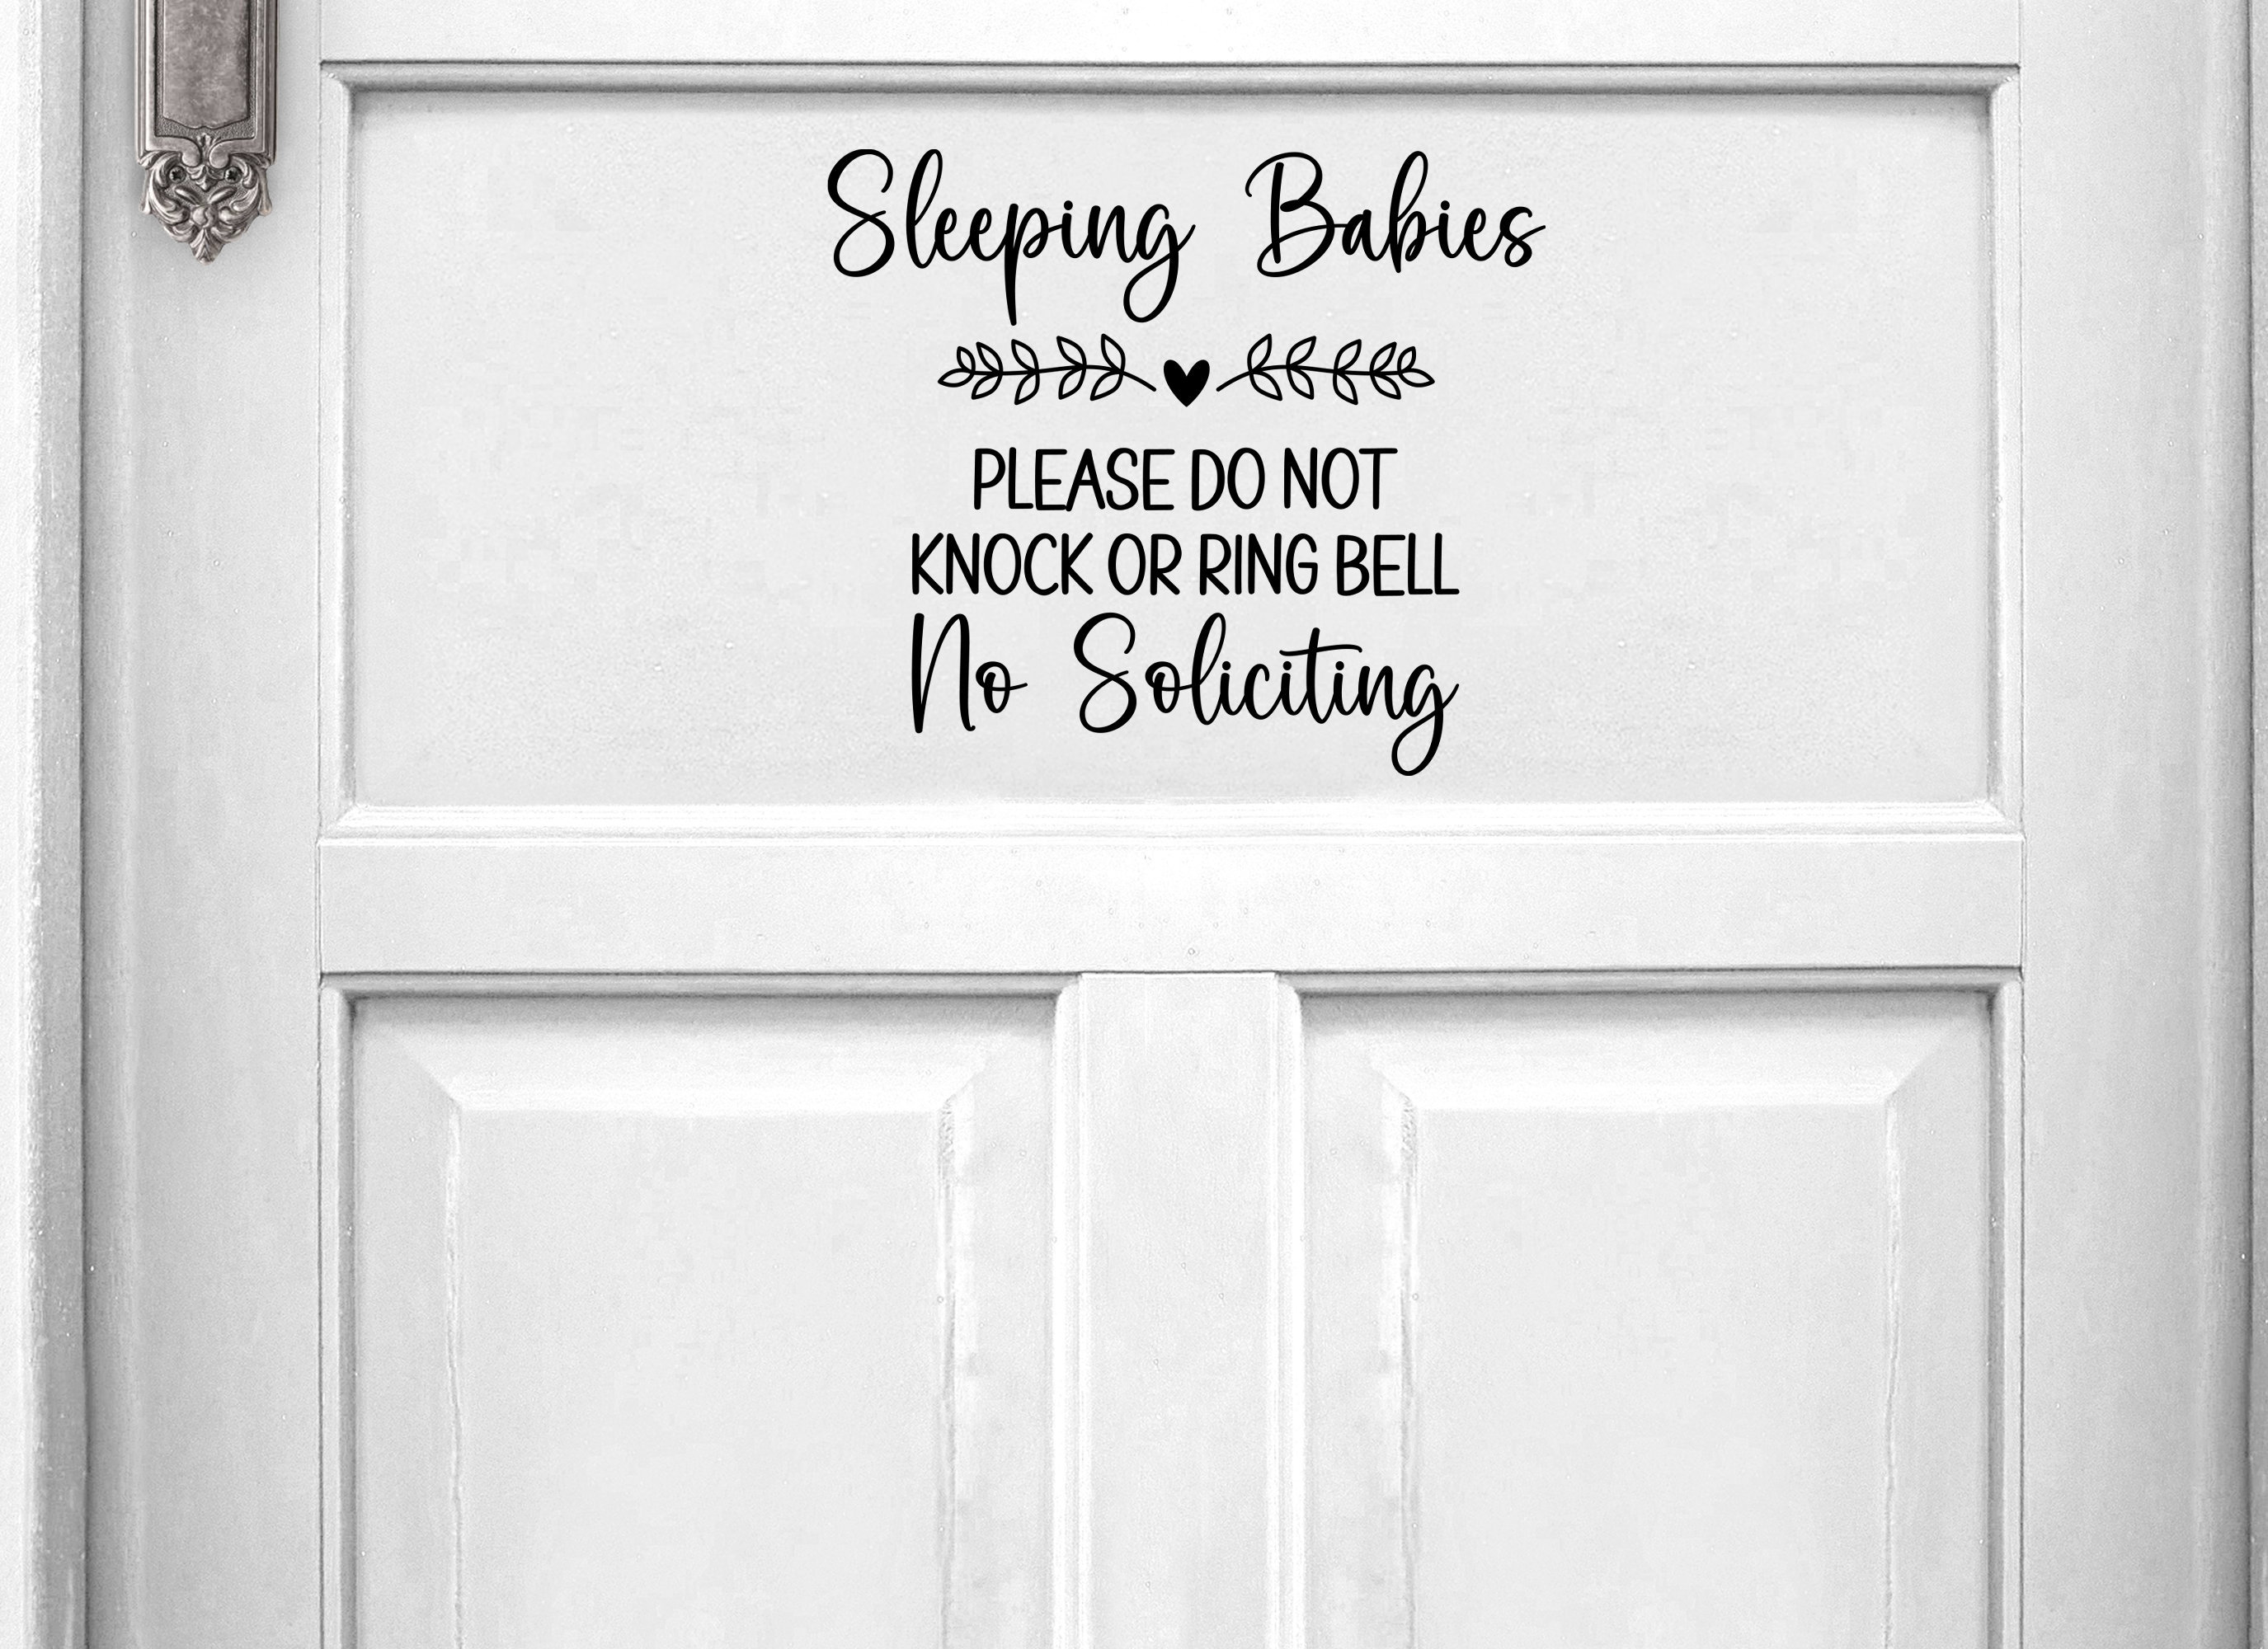 Sleeping Babies
PLEASE DO NOT
KNOCK OR RING BELL
No Soliciting